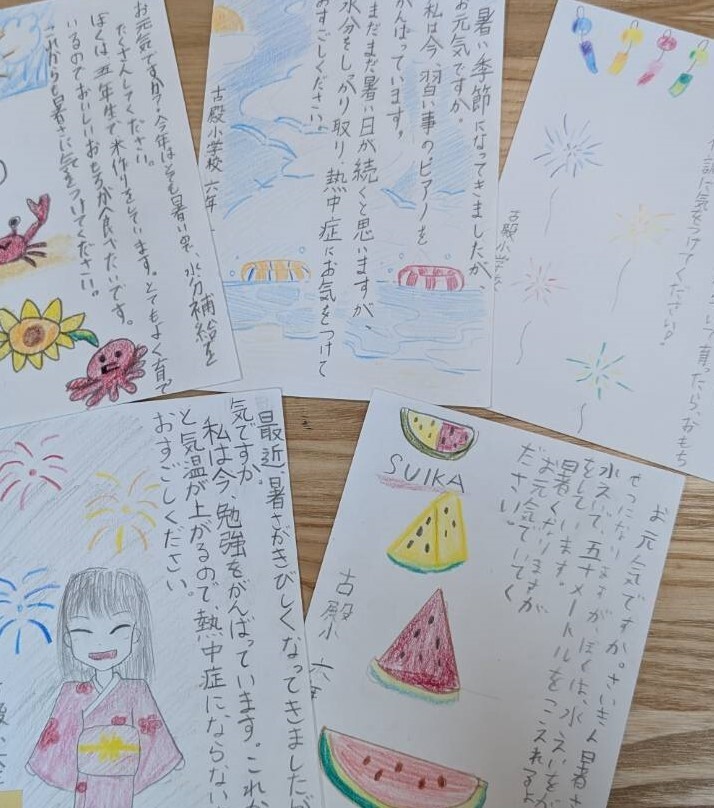 お元気ですか？今年はとても暑いので、水分補給を
たくさんしてください。
ぼくは五年生で米作りをしています。とてもよく育て
いるのでおいしいおもちが食べさせたいです。
これからも暑さに気をつけてください。
暑い季節になってきましたが、
お元気ですか。
私は今、習い事のピアノを
がんばっています。
まだまだ暑い日が続くと思いますが、
水分をしっかり取り、熱中症にお気をつけて
おすごしください。
古殿小学校 六年
育ったら、おもち
に気をつけてください？
古殿小学校
最近、暑さがきびしくなってきましたが
気ですか。
私は今、勉強をがんばっています。これか
と気温が上がるので、熱中症にならない
おすごしください。
お元気ですか。さいきん暑さ
せつになりますが、ぼくは、水えいをが
水えいで、五十メートルをこえれるよ
をしています。
暑くなりますが
お元気でいてく
ださい。
SUIKA
古殿小 六年